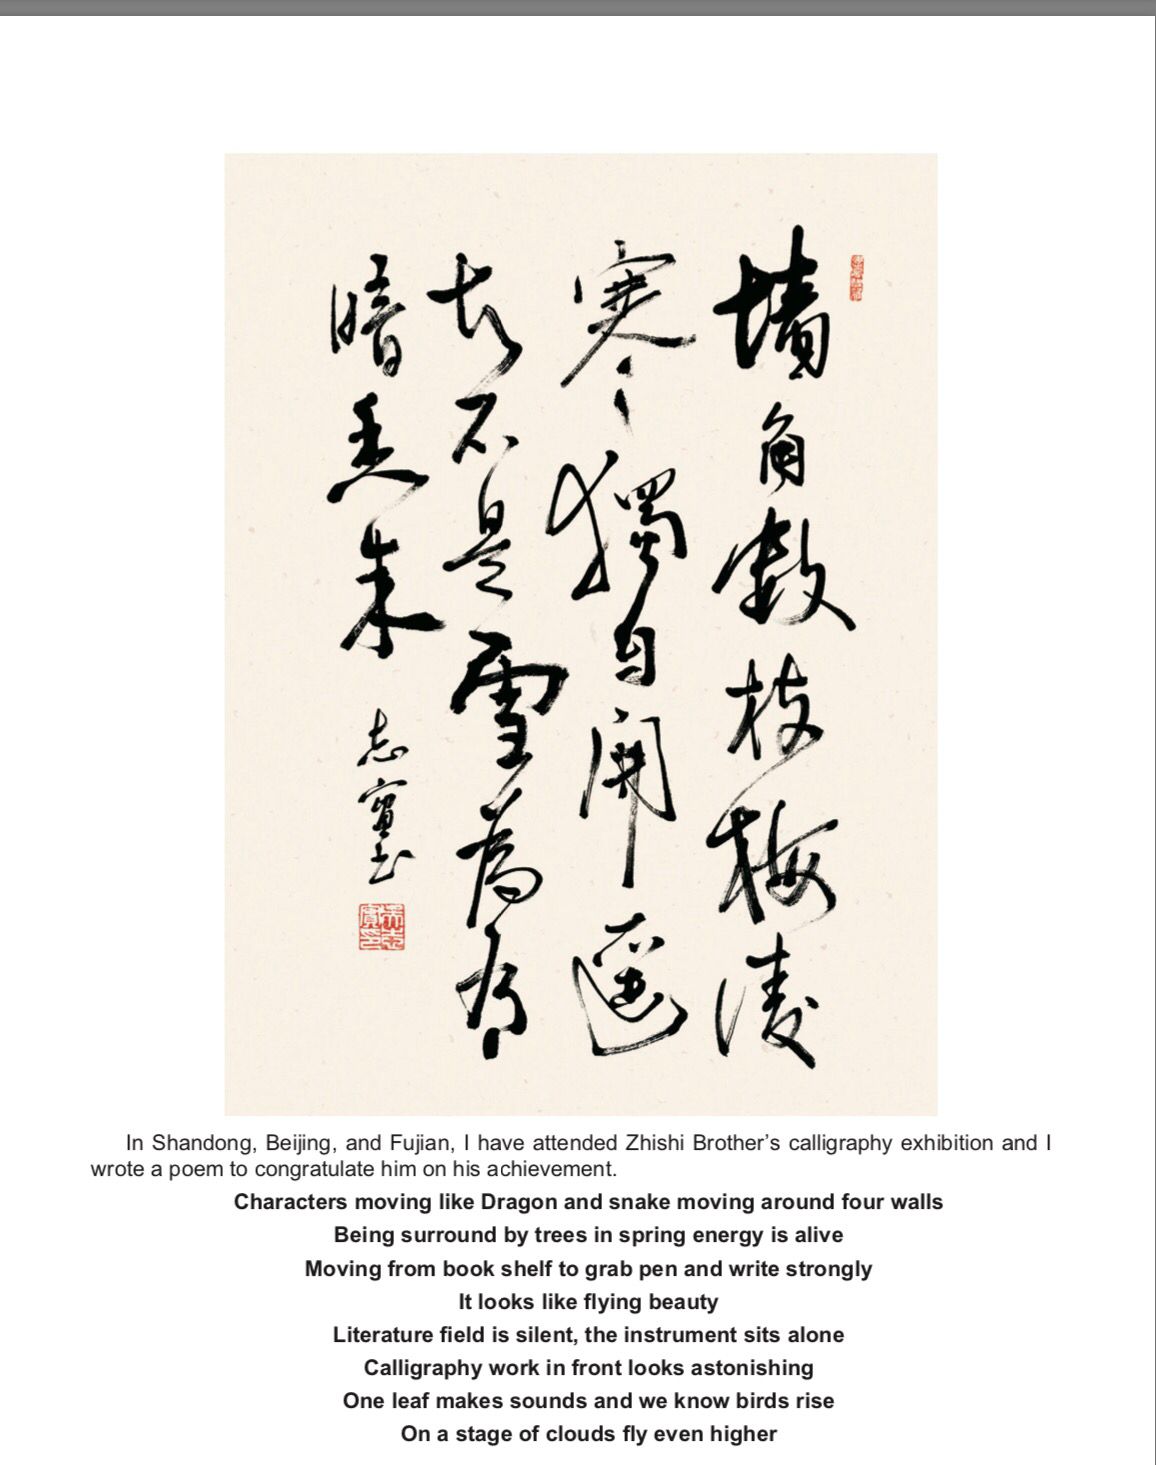 墻角數枝梅凌
寒獨自開遥
知不是雪為有
暗香来
志實书
In Shandong, Beijing, and Fujian, I have attended Zhishi Brother’s calligraphy exhibition and I
wrote a poem to congratulate him on his achievement.
Characters moving like Dragon and snake moving around four walls
Being surround by trees in spring energy is alive
Moving from book shelf to grab pen and write strongly
It looks like flying beauty
Literature field is silent, the instrument sits alone
Calligraphy work in front looks astonishing
One leaf makes sounds and we know birds rise
On a stage of clouds fly even higher